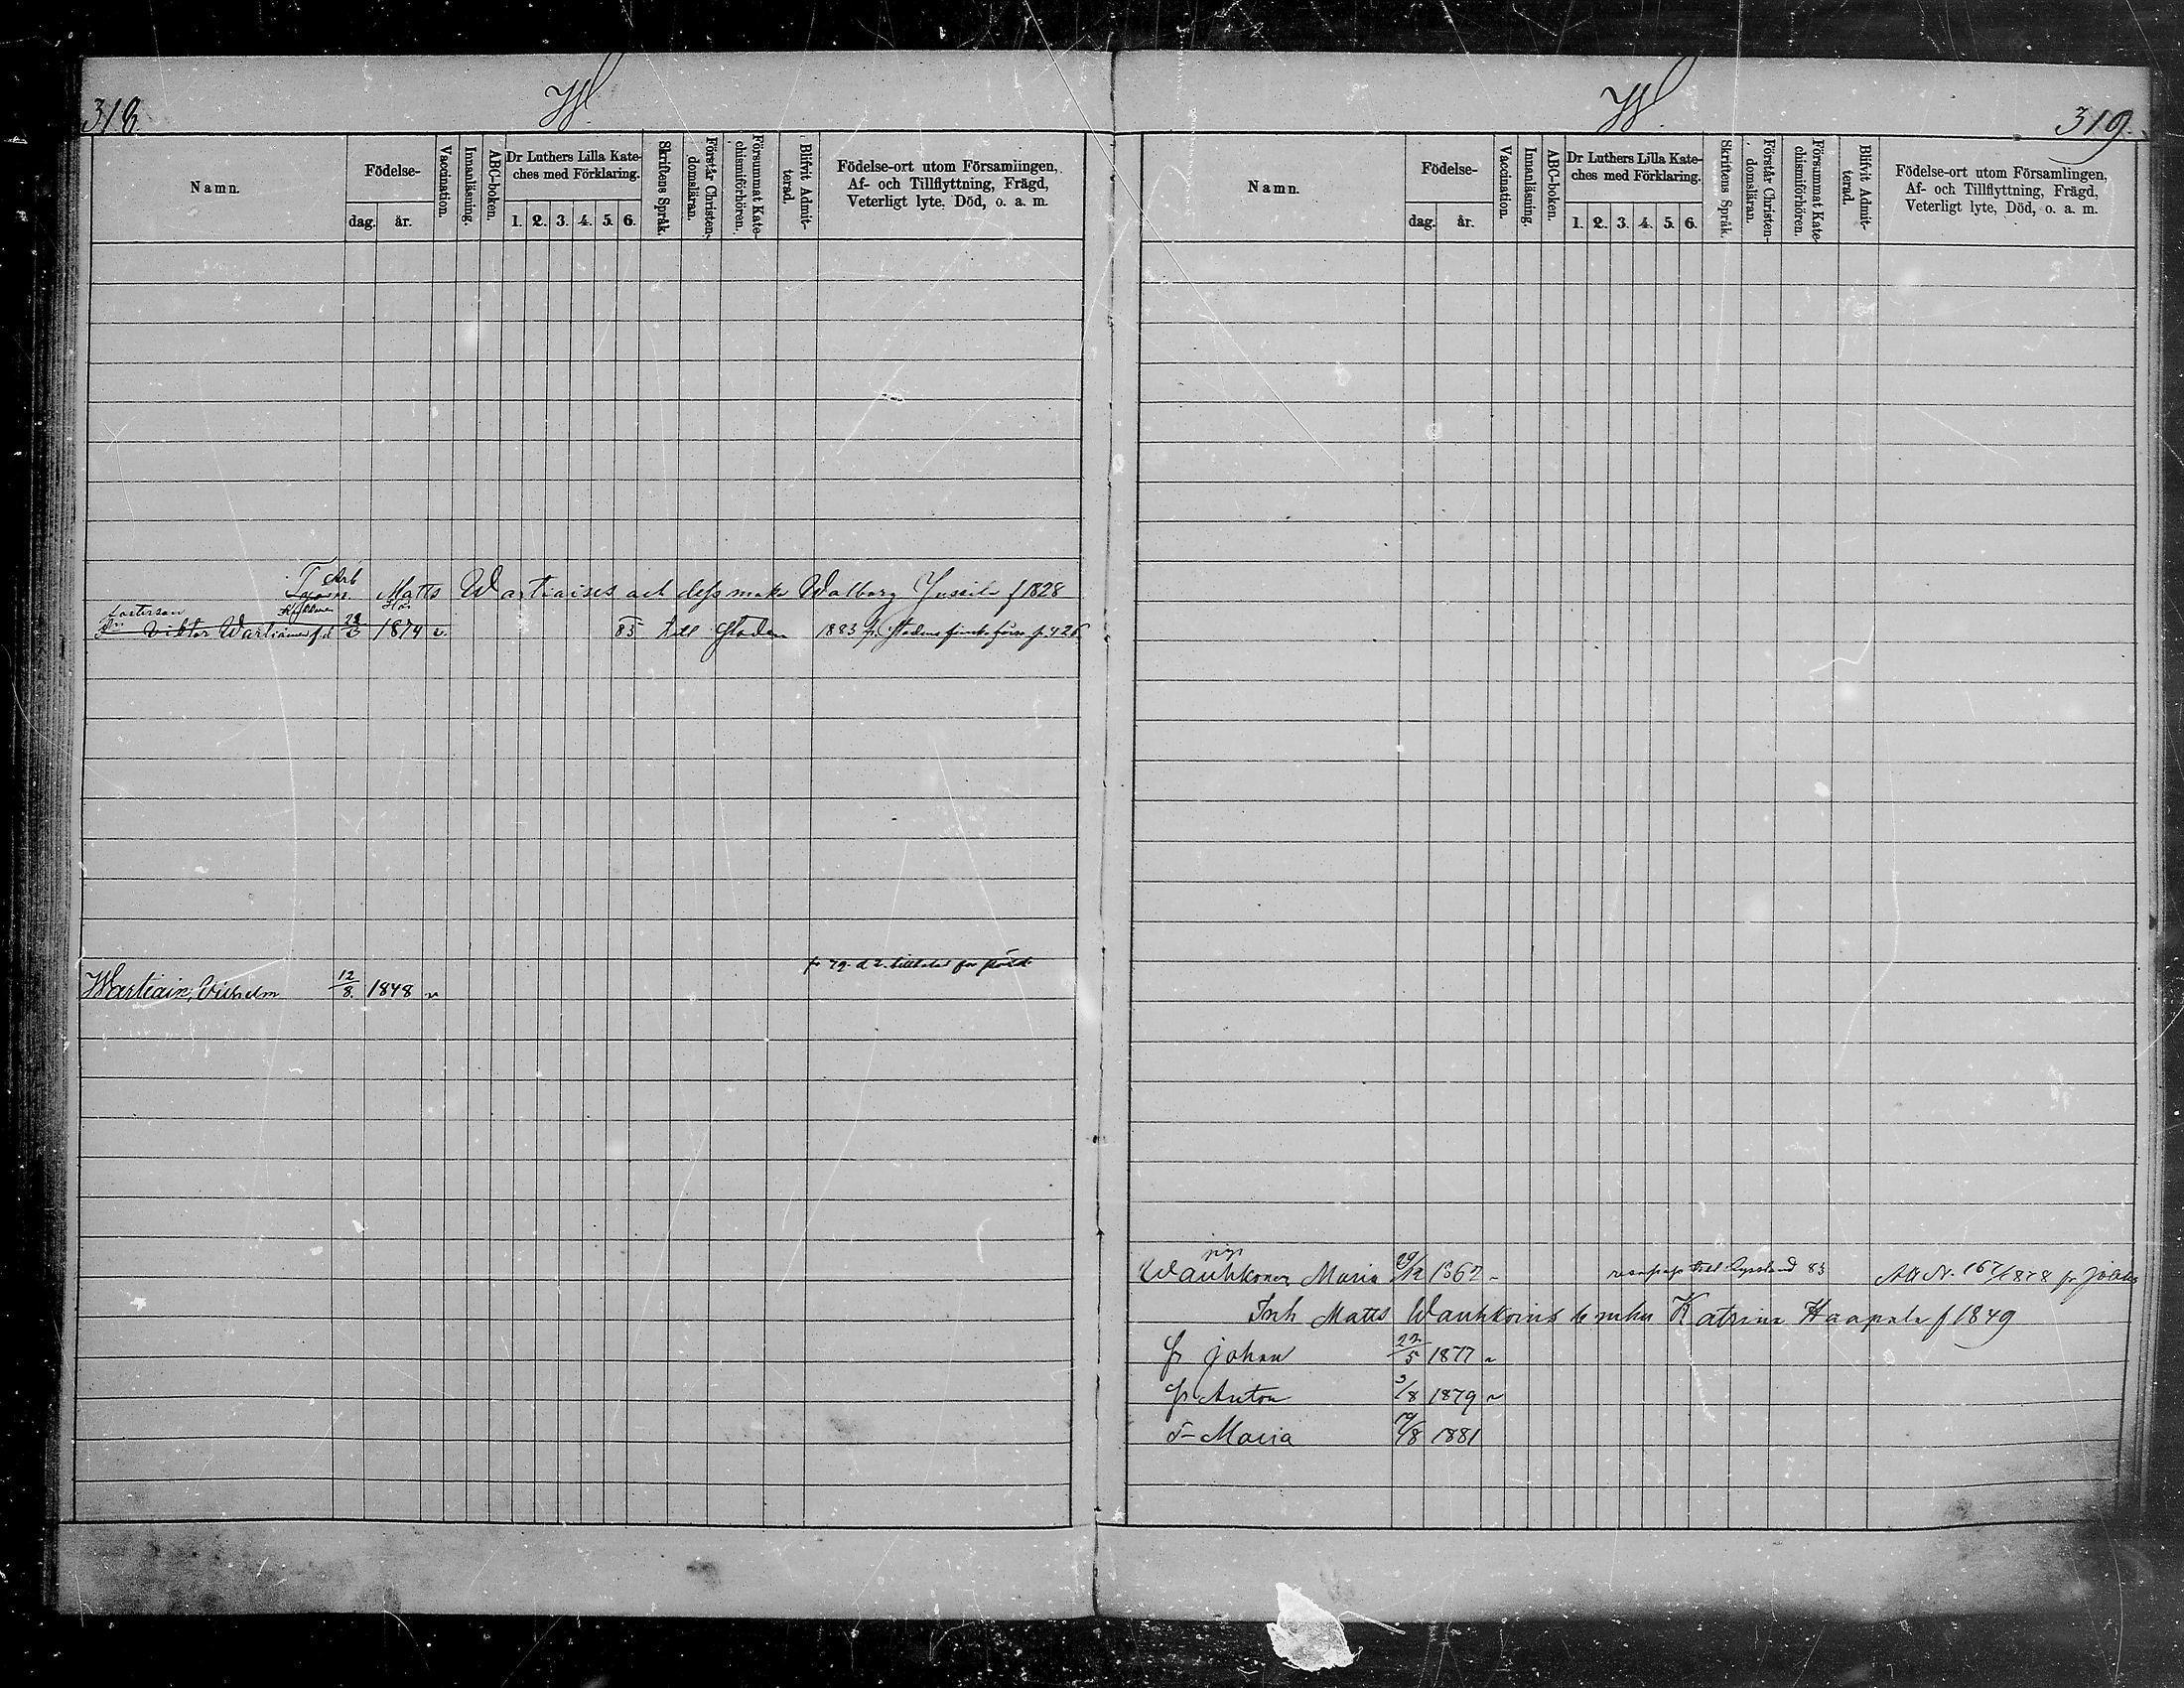 318.
W.
Namn.
Födelse-
dag.
år.
Vaccination.
Innanläsning.
ABC-boken.
Dr Luthers Lilla Kate-
ches med Förklaring.
1. 2. 3. 4. 5. 6.
Skriftens Språk.
Förstår Christen-
domsläran.
Försummat Kate-
chismiförhören.
Blifvit Admit-
terad.
Födelse-ort utom Församlingen,
Af- och Tillflyttning, Frägd,
Veterligt lyte, Död, o. a. m.
Arb
Matts Wartiaises och dess maka Walborg f 1828
Viktor Wartiainen 1874 v. 83 till Staden 1883 fr. Stadens finska förs. p. 426
Wartiain, Vilhelm 12/8. 1848 v
319.
W.
Namn.
Födelse-
dag.
år.
Vaccination.
Innanläsning.
ABC-boken.
Dr Luthers Lilla Kate-
ches med Förklaring.
1. 2. 3. 4. 5. 6.
Skriftens Språk.
Förstår Christen-
domsläran.
Försummat Kate-
chismiförhören.
Blifvit Admit-
terad.
Födelse-ort utom Församlingen,
Af- och Tillflyttning, Frägd,
Veterligt lyte, Död, o. a. m.
pigs
Wauhkonen Maria 29/12 1862 till Ryssland 83 Att N. 167/1878 fr
Inh Matts Wauhkoins Katrina Haapala f 1849
Johan 22/5 1877 v
Anton 3/8 1879 v
Maria 19/8 1881